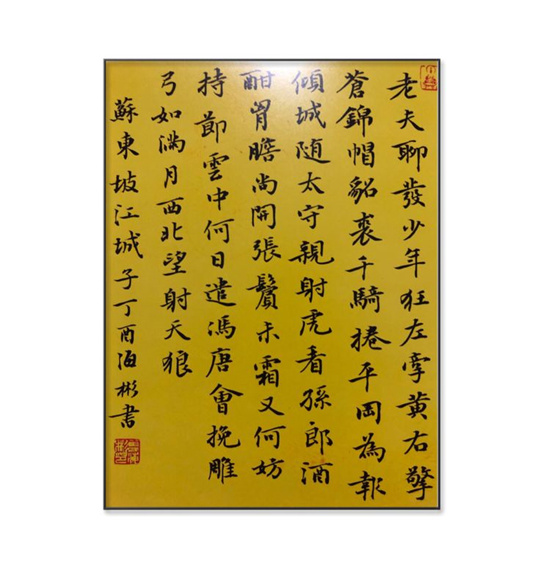 老夫聊發少年狂左牽黄右擎
蒼錦帽貂裘千騎捲平岡為報
傾城随太守親射虎看孫郎酒
酣胷膽尚開張鬢未霜又何妨
持節雲中何日遣馮唐會挽雕
弓如满月西北望射天狼
蘇東坡江城子丁酉海彬書